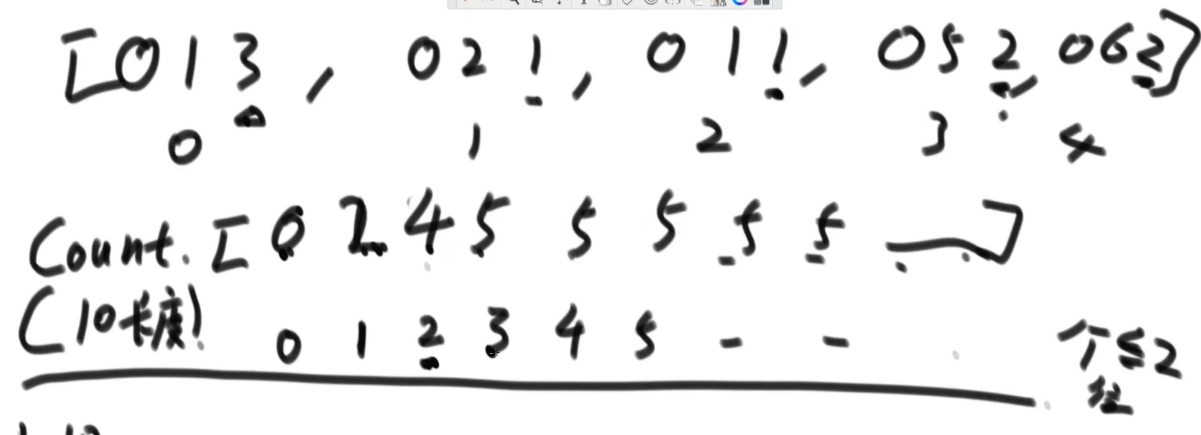 [013, 021, 011, 052, 062]
0 1 2 3 4
Count. [0 2 4 5 5 5 5 5 —]
(10长度) 0 1 2 3 4 5 - -
个≤2